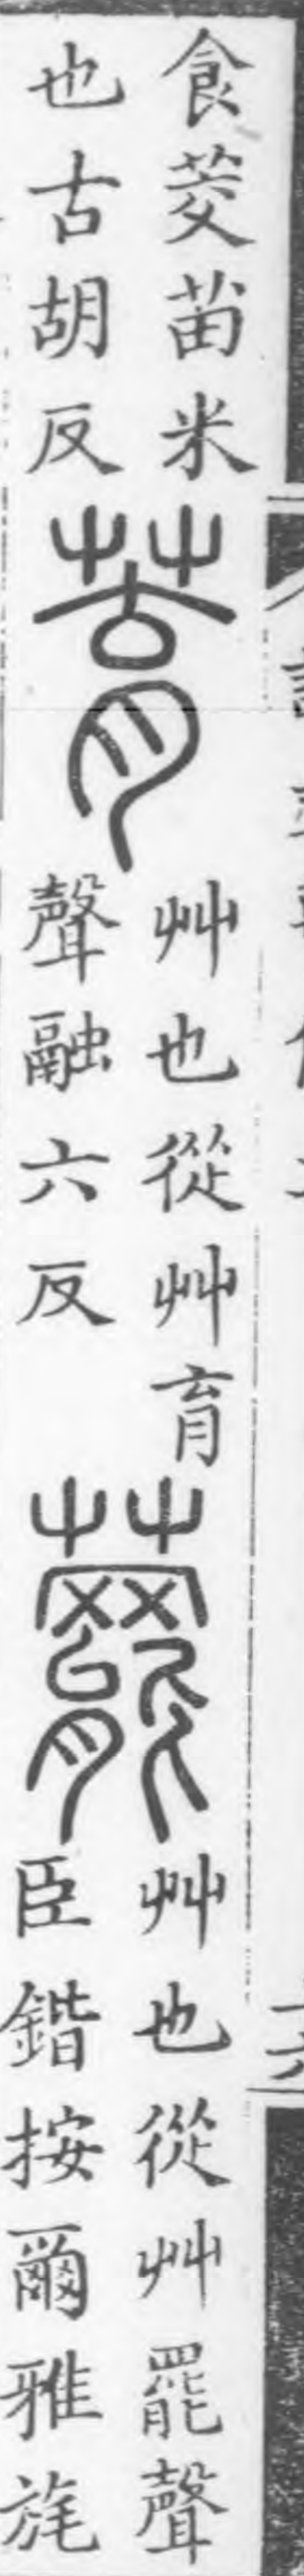 食茭苗米
也古胡反
䔰
艸也從艸育
聲融六反
䆉
艸也從艸罷聲
臣鍇按爾雅旄